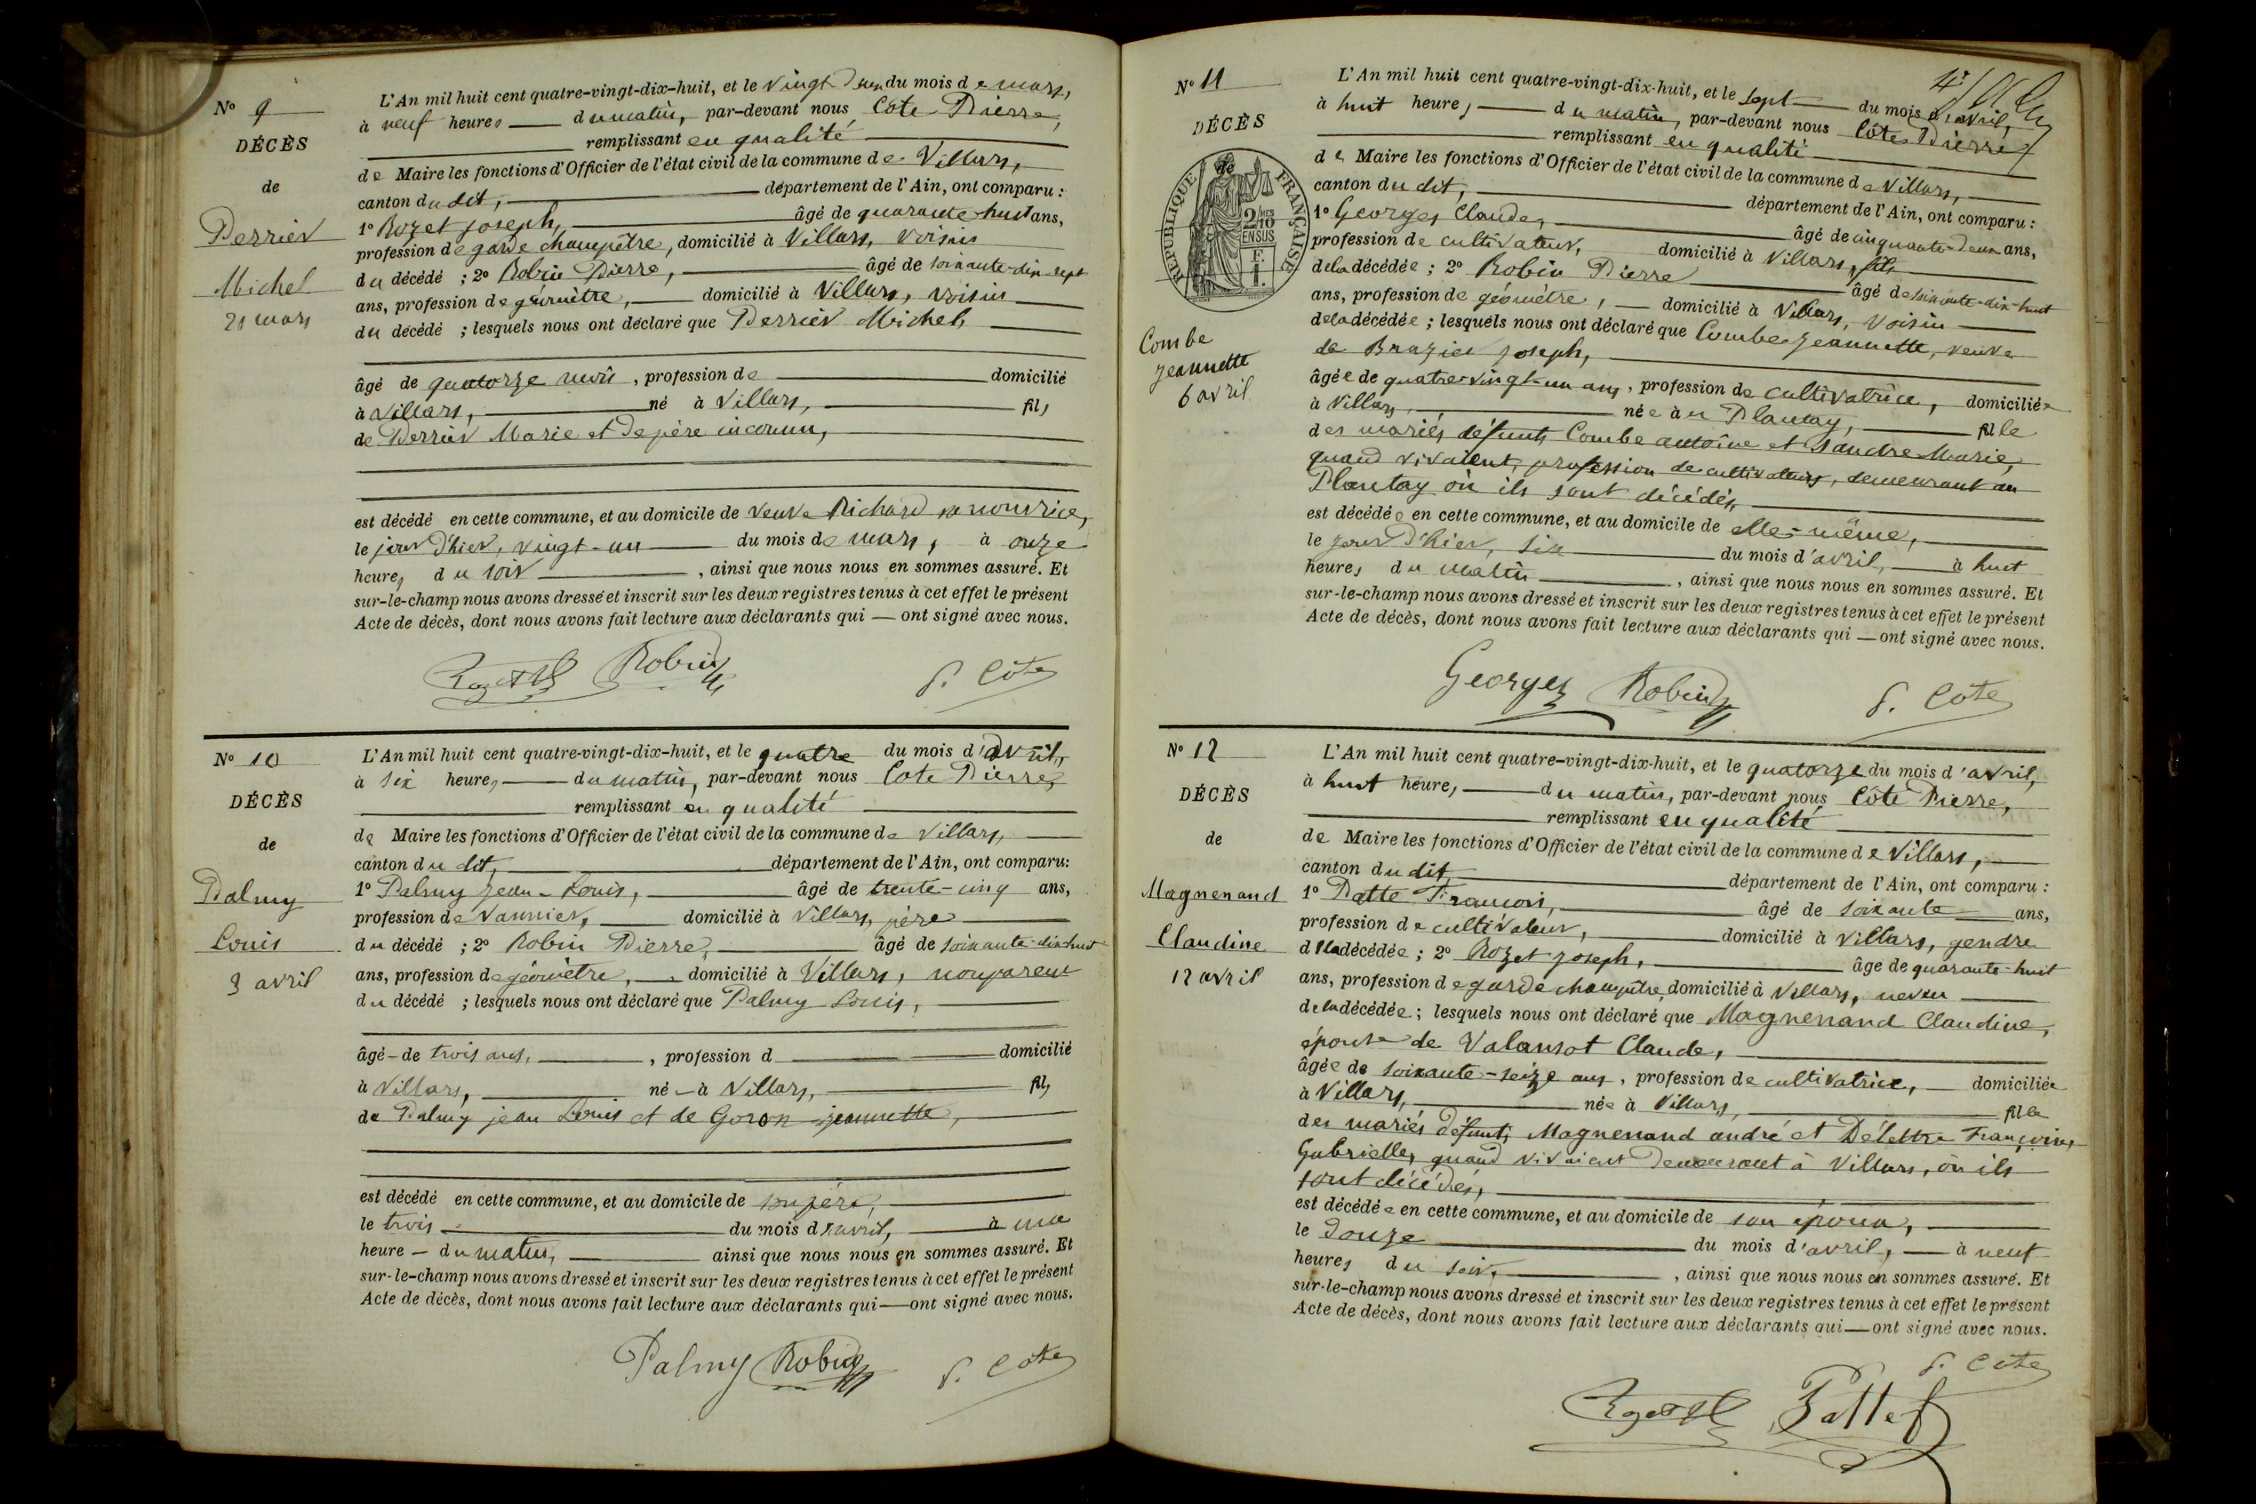 N° 9
DÉCÈS
de
Perrier
Michel
21 mars
L'An mil huit cent quatre-vingt-dix-huit, et le vingt-deux du mois de mars,
à neuf heures du matin, par-devant nous Côte Pierre,
remplissant en qualité
de Maire les fonctions d'Officier de l'état civil de la commune de Villars,
canton du dit, département de l'Ain, ont comparu :
1° Rozet joseph, âgé de quarante-huit ans,
profession de garde champêtre, domicilié à Villars, voisin
du décédé ; 2° Robin Pierre, âgé de soixante-dix-sept
ans, profession de géomètre, domicilié à Villars, voisin
du décédé ; lesquels nous ont déclaré que Perrier Michel,
âgé de quatorze mois, profession de domicilié
à Villars, né à Villars, fils
de Perrier Marie et de père inconnu,
est décédé en cette commune, et au domicile de veuve Richard sa nourrice,
le jour d'hier, vingt-un du mois de mars, à onze
heures du soir, ainsi que nous nous en sommes assuré. Et
sur-le-champ nous avons dressé et inscrit sur les deux registres tenus à cet effet le présent
Acte de décès, dont nous avons fait lecture aux déclarants qui — ont signé avec nous.
Rozet Robin P. Côte
N° 10
DÉCÈS
de
Palmy
Louis
3 avril
L'An mil huit cent quatre-vingt-dix-huit, et le quatre du mois d'avril,
à six heures du matin, par-devant nous Cote Pierre,
remplissant en qualité
de Maire les fonctions d'Officier de l'état civil de la commune de Villars,
canton du dit, département de l'Ain, ont comparu :
1° Palmy Jean-Louis, âgé de trente-cinq ans,
profession de Vannier, domicilié à Villars, père
du décédé ; 2° Robin Pierre, âgé de soixante-dix-huit
ans, profession de géomètre, domicilié à Villars, non parent
du décédé ; lesquels nous ont déclaré que Palmy Louis,
âgé de trois ans, profession d domicilié
à Villars, né à Villars, fils
de Palmy jean Louis et de Goron jeannette,
est décédé en cette commune, et au domicile de son père,
le trois du mois d'avril, à une
heure — du matin, ainsi que nous nous en sommes assuré. Et
sur-le-champ nous avons dressé et inscrit sur les deux registres tenus à cet effet le présent
Acte de décès, dont nous avons fait lecture aux déclarants qui — ont signé avec nous.
Palmy Robin P. Côte
N° 11
DÉCÈS
de
RÉPUBLIQUE FRANÇAISE
2/10
EN SUS
F.
1.
Combe
jeannette
6 avril
L'An mil huit cent quatre-vingt-dix-huit, et le sept du mois d'avril,
à huit heures du matin, par-devant nous Côte Pierre,
remplissant en qualité
de Maire les fonctions d'Officier de l'état civil de la commune de Villars,
canton du dit, département de l'Ain, ont comparu :
1° Georges Claude, âgé de cinquante-deux ans,
profession de cultivateur, domicilié à Villars, fils
de la décédée ; 2° Robin Pierre âgé de soixante-dix-huit
ans, profession de géomètre, domicilié à Villars, voisin
de la décédée ; lesquels nous ont déclaré que Combe Jeannette, veuve
de Brazier joseph,
âgée de quatre-vingt-un ans, profession de cultivatrice, domiciliée
à Villars, née au Plantay, fille
des mariés défunts Combe antoine et Sandre Marie,
quand vivaient, profession de cultivateurs, demeurant au
Plantay où ils sont décédés,
est décédée en cette commune, et au domicile de elle-même,
le jour d'hier, six du mois d'avril, à huit
heures du matin, ainsi que nous nous en sommes assuré. Et
sur-le-champ nous avons dressé et inscrit sur les deux registres tenus à cet effet le présent
Acte de décès, dont nous avons fait lecture aux déclarants qui — ont signé avec nous.
Georges Robin P. Côte
N° 12
DÉCÈS
de
Magnenand
Claudine
12 avril
L'An mil huit cent quatre-vingt-dix-huit, et le quatorze du mois d'avril,
à huit heures, du matin, par-devant nous Côte Pierre,
remplissant en qualité
de Maire les fonctions d'Officier de l'état civil de la commune de Villars,
canton du dit, département de l'Ain, ont comparu :
1° Patte François, âgé de soixante ans,
profession de cultivateur, domicilié à Villars, gendre
de la décédée ; 2° Rozet joseph, âge de quarante-huit
ans, profession de garde champêtre, domicilié à Villars, neveu
de la décédée ; lesquels nous ont déclaré que Magnenand Claudine,
épouse de Valansot Claude,
âgée de soixante-seize ans, profession de cultivatrice, domiciliée
à Villars, née à Villars, fille
des mariés défunts Magnenand andré et Délettre Françoise
Gabrielle, quand vivaient demeurant à Villars, où ils
sont décédés,
est décédée en cette commune, et au domicile de son époux,
le douze du mois d'avril, à neuf
heures du soir, ainsi que nous nous en sommes assuré. Et
sur-le-champ nous avons dressé et inscrit sur les deux registres tenus à cet effet le présent
Acte de décès, dont nous avons fait lecture aux déclarants qui — ont signé avec nous.
P. Côte
Rozet Patte